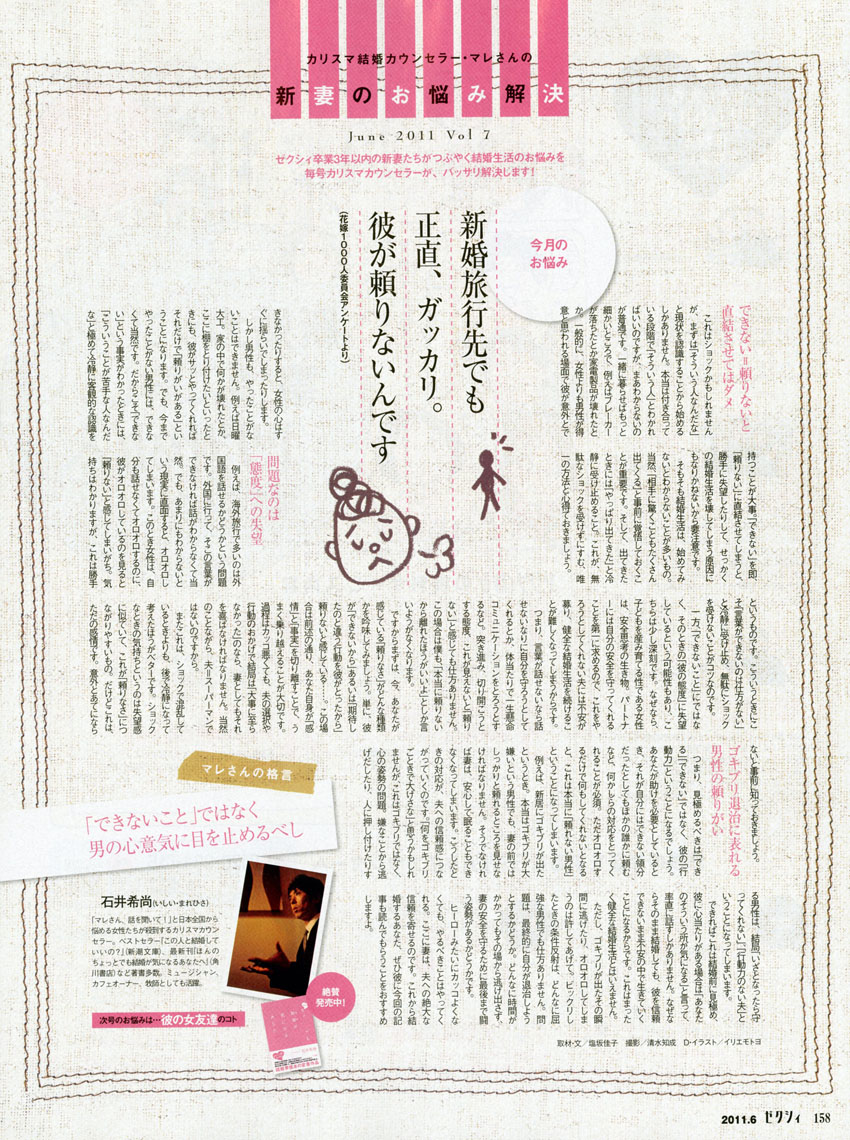 カリスマ結婚カウンセラー・マレさんの
新妻のお悩み解決
June 2011 Vol 7
ゼクシィ卒業3年以内の新妻たちがつぶやく結婚生活のお悩みを
毎号カリスマカウンセラーが、バッサリ解決します!
今月の
お悩み
新婚旅行先でも
正直、ガッカリ。
彼が頼りないんです
(花嫁1000人委員会アンケートより)
できない=頼りないと
直結させてはダメ
これはショックかもしれません
が、まずは「そういう人なんだな」
と現状を認識することから始める
しかありません。本当は付き合って
いる段階で「そういう人」とわかれ
ばいいのですが、まあわからないの
が普通です。一緒に暮らせばもっと
細かいところで、例えばブレーカー
が落ちたとか家電製品が壊れたと
か、一般的に、女性よりも男性が得
意と思われる場面で彼が意外とで
きなかったりすると、女性の心はす
ぐに揺らいでしまったりします。
しかし男性も、やったことがな
いことはできません。例えば日曜
大工。家の中で何かが壊れたとか、
ここに棚をとり付けたいといったと
きにも、彼がサッとやってくれれば
それだけで「頼りがいがある」とい
うことになります。でも、今まで
やったことがない男性には、できな
くて当然です。だからこそ「できな
い」という事実がわかったときには、
「こういうことが苦手な人なんだ
な」と極めて冷静に客観的な認識を
持つことが大事。「できない」を即、
「頼りない」に直結させてしまうと、
勝手に失望したりして、せっかく
の結婚生活を壊してしまう原因に
もなりかねないから要注意です。
そもそも結婚生活は、始めてみ
ないとわからないことが多いもの。
当然、「相手に驚くこともたくさん
出てくる」と事前に覚悟しておくこ
とが重要です。そして、出てきた
ときには「やっぱり出てきた」と冷
静に受け止めること。これが、無
駄なショックを受けずにすむ、唯
一の方法と心得ておきましょう。
問題なのは
「態度」への失望
例えば、海外旅行で多いのは外
国語を話せるかどうかという問題
です。外国に行って、そこの言葉が
できなければ話がわからなくて当
然。でも、あまりにもわからないと
いう現実に直面すると、オロオロし
てしまいます。このとき女性は、自
分も話せなくてオロオロするのに、
彼がオロオロしているのを見ると
「頼りない」と感じてしまいがち。気
持ちはわかりますが、これは勝手
というものです。こういうときにこ
そ「言葉ができないのは仕方がない」
と冷静に受け止め、無駄にショック
を受けないことがコツなのです。
一方、「できないこと」にではな
く、そのときの「彼の態度」に失望
しているという可能性もあり、こ
ちらは少し深刻です。なぜなら、
子どもを産み育てる性である女性
は、安全思考の生き物。パートナ
ーには自分の安全を守ってくれる
ことを第一に求めるので、これをや
ろうとしてくれない夫には不安が
募り、健全な結婚生活を続けるこ
とが難しくなってしまうからです。
つまり、言葉が話せないなら話
せないなりに自分を守ろうとして
くれるとか、体当たりで一生懸命
コミュニケーションをとろうとす
るなど、突き進み、切り開こうと
する態度、これが見えないと「頼り
ない」と感じても仕方ありません。
この場合は僕も、「本当に頼りない
から離れたほうがいいよ」としか言
いようがなくなります。
ですからまずは、今、あなたが
感じている「頼りなさ」がどんな種類
かを吟味してみましょう。単に、彼
が「できないから」あるいは「期待し
たのと違う行動を彼がとったから」
頼りないと感じている……。この場
合は前述の通り、あなた自身が「感
情」と「事実」を切り離すことで、う
まく乗り越えることが大切です。
過程はカッコ悪くても、夫の選択や
行動のおかげで結局は「大事に至ら
なかった」のなら、妻としてもそれ
を喜ばなければなりません。当然
のことながら、夫=スーパーマンで
はないのですから。
またこれは、ショックで混乱して
いるときよりも、後で冷静になって
考えたほうがベターです。ショック
なときの気持ちというのは失望感
に似ていて、これが「頼りなさ」につ
ながりやすいもの。だけどこれは、
ただの感情です。意外とあてになら
ないと事前に知っておきましょう。
ゴキブリ退治に表れる
男性の頼りがい
つまり、見極めるべきは「でき
る」「できない」ではなく、彼の「行
動力」ということになるでしょう。
あなたが助けを必要としていると
き、それが自分にはできない領分
だったとしてもほかの誰かに頼む
など、何かしらの対応をとってく
れることが必須。ただオロオロす
るだけで何もしてくれないとなる
と、これは本当に「頼れない男性」
ということになってしまいます。
例えば、新居にゴキブリが出た
というとき。本当はゴキブリが大
嫌いという男性でも、妻の前では
しっかりと頼れるところを見せな
ければなりません。そうでなけれ
ば妻は、安心して眠ることもでき
なくなってしまいます。こうしたと
きの対応が、夫への信頼感につな
がっていくのです。「何をゴキブリ
ごときで大げさな」と思うかもしれ
ませんが、これはゴキブリではなく、
心の姿勢の問題。嫌なことから逃
げだしたり、人に押し付けたりす
る男性は、結局「いざとなったら守
ってくれない」「行動力のない夫」と
いうことになってしまいます。
できればこれは結婚前に見極め、
彼に心当たりがある場合は「あなた
のそういう所が気になる」と言って、
率直に話すしかありません。なぜな
らそのまま結婚しても、彼を信頼
できないまま不安の中で生きていく
ことになるからです。これはまった
く健全な結婚生活とはいえません。
ただし、ゴキブリが出たその瞬
間に逃げたり、オロオロしてしま
うのは許してあげて。ビックリし
たときの条件反射は、どんなに屈
強な男性でも仕方ありません。問
題は、最終的に自分が退治しよう
とするかどうか。どんなに時間が
かかってもその場から逃げ出さず、
妻の安全を守るために最後まで闘
う姿勢があるかどうかです。
ヒーローみたいにカッコよくな
くても、やるべきことはやってく
れる。ここに妻は、夫への絶大な
信頼を寄せるのです。これから結
婚するあなた、ぜひ彼に今回の記
事も読んでもらうことをおすすめ
しますよ。
マレさんの格言
「できないこと」ではなく
男の心意気に目を止めるべし
石井希尚(いしい・まれひさ)
「マレさん、話を聞いて!」と日本全国から
悩める女性たちが殺到するカリスマカウン
セラー。ベストセラー『この人と結婚して
いいの?』(新潮文庫)、最新刊『ほんの
ちょっとでも結婚が気になるあなたへ』(角
川書店)など著書多数。ミュージシャン、
カフェオーナー、牧師としても活躍。
絶賛
発売中!
次号のお悩みは…彼の女友達のコト
取材・文/塩坂佳子 撮影/清水知成 D・イラスト/イリエモトヨ
2011.6 ゼクシィ 158